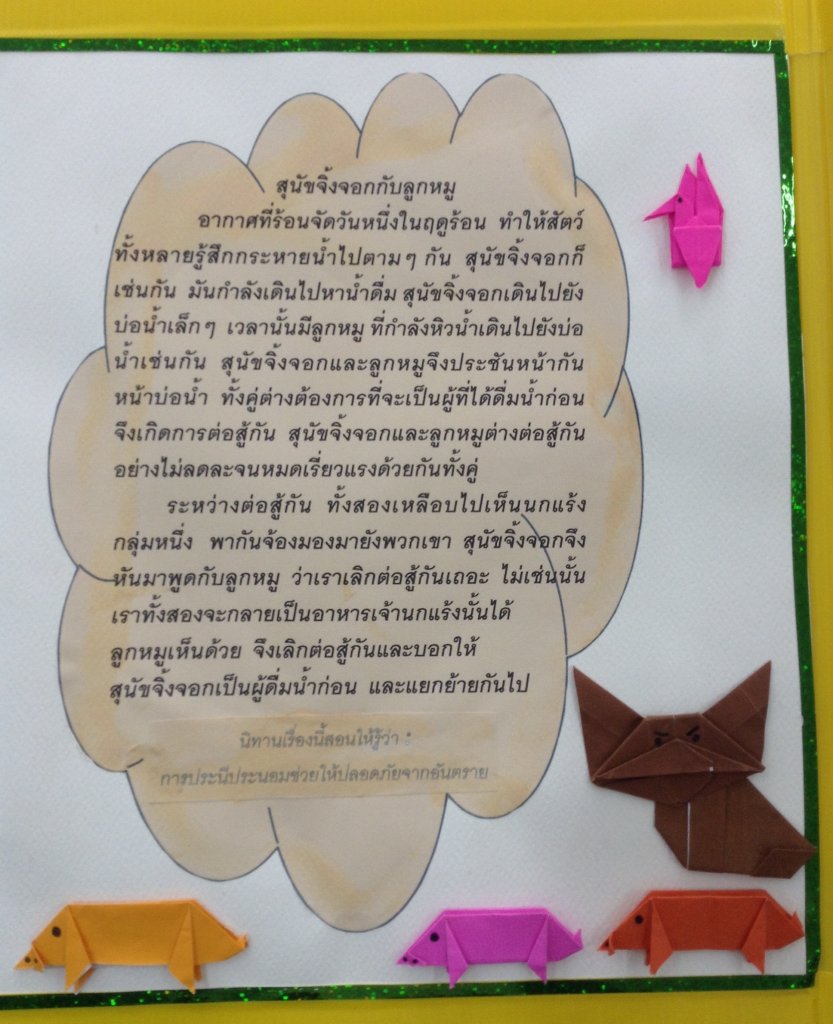 สุนัขจิ้งจอกกับลูกหมู
อากาศที่ร้อนจัดวันหนึ่งในฤดูร้อน ทำให้สัตว์
ทั้งหลายรู้สึกกระหายน้ำไปตามๆ กัน สุนัขจิ้งจอกก็
เช่นกัน มันกำลังเดินไปหาน้ำดื่ม สุนัขจิ้งจอกเดินไปยัง
บ่อน้ำเล็กๆ เวลานั้นมีลูกหมู ที่กำลังหิวน้ำเดินไปยังบ่อ
น้ำเช่นกัน สุนัขจิ้งจอกและลูกหมูจึงประชันหน้ากัน
หน้าบ่อน้ำ ทั้งคู่ต่างต้องการที่จะเป็นผู้ที่ได้ดื่มน้ำก่อน
จึงเกิดการต่อสู้กัน สุนัขจิ้งจอกและลูกหมูต่างต่อสู้กัน
อย่างไม่ลดละจนหมดเรี่ยวแรงด้วยกันทั้งคู่
ระหว่างต่อสู้กัน ทั้งสองเหลือบไปเห็นนกแร้ง
กลุ่มหนึ่ง พากันจ้องมองมายังพวกเขา สุนัขจิ้งจอกจึง
หันมาพูดกับลูกหมู ว่าเราเลิกต่อสู้กันเถอะ ไม่เช่นนั้น
เราทั้งสองจะกลายเป็นอาหารเจ้านกแร้งนั้นได้
ลูกหมูเห็นด้วย จึงเลิกต่อสู้กันและบอกให้
สุนัขจิ้งจอกเป็นผู้ดื่มน้ำก่อน และแยกย้ายกันไป
นิทานเรื่องนี้สอนให้รู้ว่า :
การประนีประนอมช่วยให้ปลอดภัยจากอันตราย